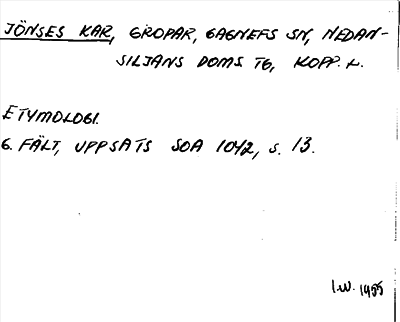 JÖNSES KAR, GROPAR, GAGNEFS SN, NEDAN-
SILJANS DOMS TG, KOPP. L.
ETYMOLOGI.
G. FÄLT, UPPSATS SOA 1042, S. 13.
I.W. 1955